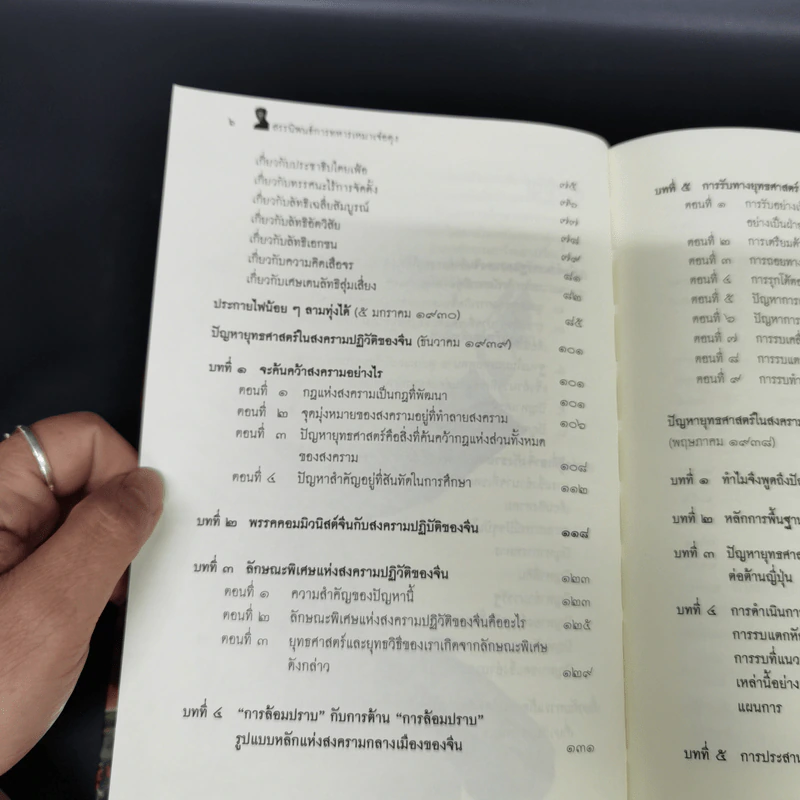 ๖ สรรนิพนธ์การทหารเหมาเจ๋อตุง
เกี่ยวกับประชาธิปไตยเฟ้อ ๗๕
เกี่ยวกับทรรศนะไร้การจัดตั้ง ๗๖
เกี่ยวกับลัทธิเฉลี่ยสัมบูรณ์ ๗๗
เกี่ยวกับลัทธิอัตวิสัย ๗๘
เกี่ยวกับลัทธิเอกชน ๗๙
เกี่ยวกับความคิดเสือจร ๘๑
เกี่ยวกับเศษเดนลัทธิสุ่มเสี่ยง ๘๒
ประกายไฟน้อย ๆ ลามทุ่งได้ (๕ มกราคม ๑๙๓๐) ๘๕
ปัญหายุทธศาสตร์ในสงครามปฏิวัติของจีน (ธันวาคม ๑๙๓๙) ๑๐๑
บทที่ ๑ จะค้นคว้าสงครามอย่างไร ๑๐๑
ตอนที่ ๑ กฎแห่งสงครามเป็นกฎที่พัฒนา ๑๐๑
ตอนที่ ๒ จุดมุ่งหมายของสงครามอยู่ที่ทำลายสงคราม ๑๐๖
ตอนที่ ๓ ปัญหายุทธศาสตร์คือสิ่งที่ค้นคว้ากฎแห่งส่วนทั้งหมด
ของสงคราม ๑๐๘
ตอนที่ ๔ ปัญหาสำคัญอยู่ที่สันทัดในการศึกษา ๑๑๒
บทที่ ๒ พรรคคอมมิวนิสต์จีนกับสงครามปฏิบัติของจีน ๑๑๘
บทที่ ๓ ลักษณะพิเศษแห่งสงครามปฏิวัติของจีน ๑๒๓
ตอนที่ ๑ ความสำคัญของปัญหานี้ ๑๒๓
ตอนที่ ๒ ลักษณะพิเศษแห่งสงครามปฏิวัติของจีนคืออะไร ๑๒๕
ตอนที่ ๓ ยุทธศาสตร์และยุทธวิธีของเราเกิดจากลักษณะพิเศษ
ดังกล่าว ๑๒๙
บทที่ ๔ “การล้อมปราบ” กับการต้าน “การล้อมปราบ”
รูปแบบหลักแห่งสงครามกลางเมืองของจีน ๑๓๑
บทที่ ๕ การรับทางยุทธศาสตร์
ตอนที่ ๑ การรับอย่างเ
อย่างเป็นฝ่า
ตอนที่ ๒ การเตรียมต้
ตอนที่ ๓ การถอยทาง
ตอนที่ ๔ การรุกโต้ตอ
ตอนที่ ๕ ปัญหาการเ
ตอนที่ ๖ ปัญหาการ
ตอนที่ ๗ การรบเคลื่
ตอนที่ ๘ การรบแต
ตอนที่ ๙ การรบทำ
ปัญหายุทธศาสตร์ในสงคราม
(พฤษภาคม ๑๙๓๘)
บทที่ ๑ ทำไมจึงพูดถึงปัญ
บทที่ ๒ หลักการพื้นฐาน
บทที่ ๓ ปัญหายุทธศาส
ต่อต้านญี่ปุ่น
บทที่ ๔ การดำเนินการ
การรบแตกหัก
การรบที่แนว
เหล่านี้อย่าง
แผนการ
บทที่ ๕ การประสาน